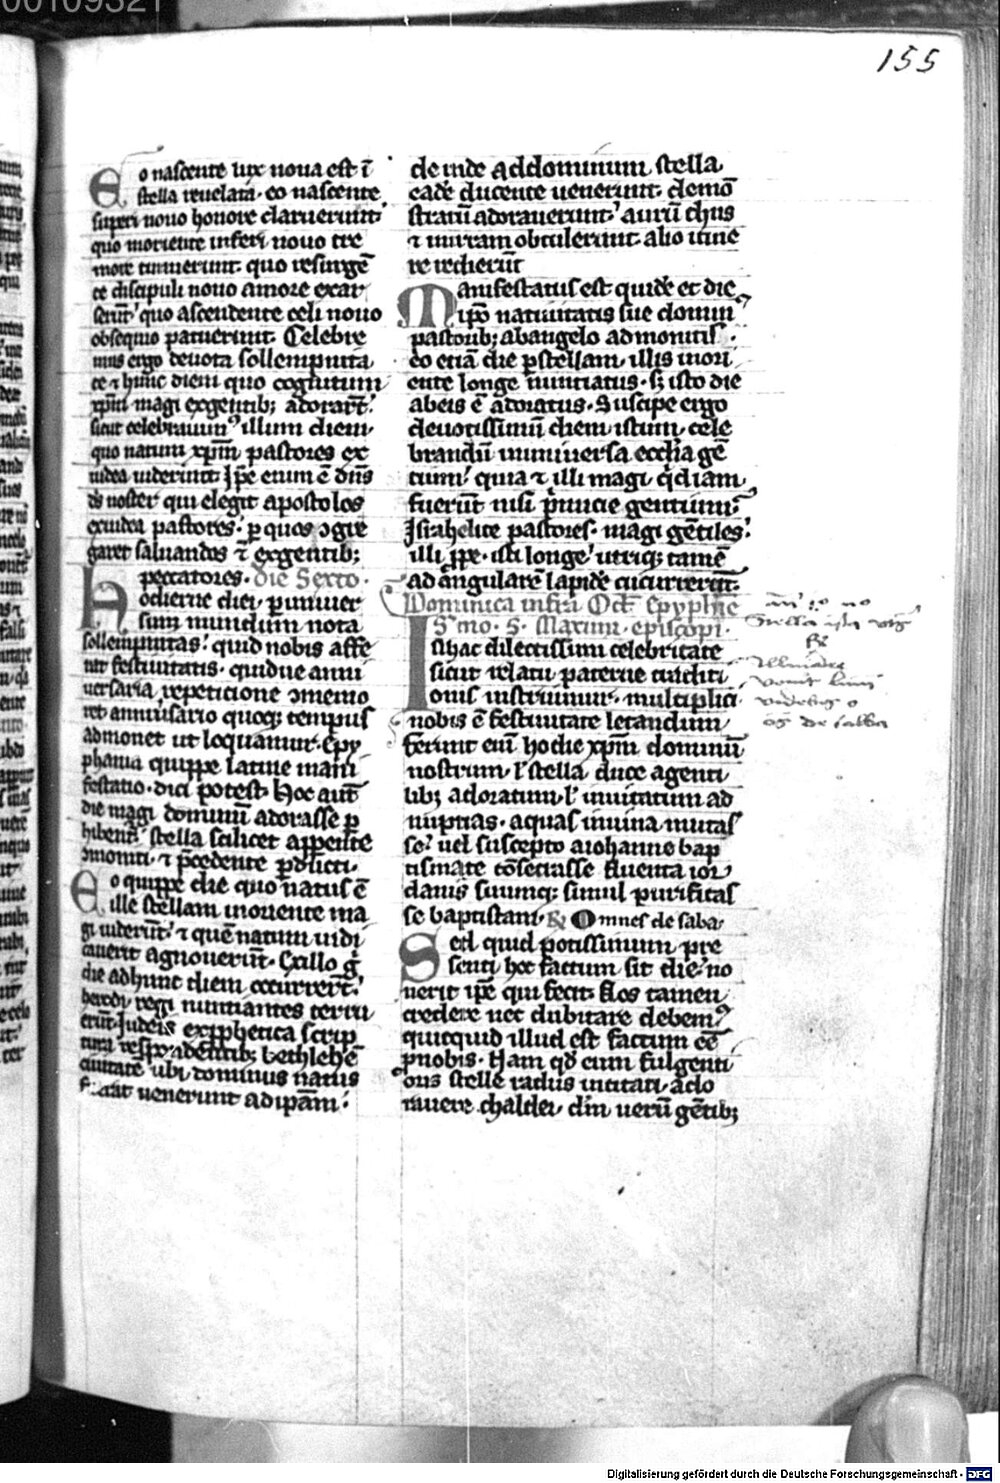 00109321
155
Eo nascente lux noua est ī
stella reuelata. eo nascente
superi nouo honore claruerunt.
quo moriente inferi nouo tre
more timuerunt. quo resurgē
te discipuli nouo amore exar
serūt. quo ascendente celi nouo
obsequio patuerunt. Celebre
mus ergo deuota sollempnita
te ⁊ hunc diem quo cognitum
xp̄m magi exgentib; adorarūt.
sicut celebrauimꝰ illum diem.
quo natum xp̄m pastores ex
iudea uiderunt. Ip̄e enim ē dn̄s
ds̄ noster qui elegit apostolos
exiudea pastores. ꝑ quos ↄgre
garet saluandos ⁊ exgentib;
peccatores. Die Sexto.
Hodierne diei. ꝑ uniuer
sum mundum nota
sollempnitas. quid nobis affe
rat festiuitatis. quidue anni
uersaria repeticione ↄmemo
ret anniuersario quoq; tempus
admonet ut loquamur. Epy
phania quippe latine mani
festatio. dici potest. Hoc aut̄
die magi dominū adorasse ꝑ
hibent̄. stella scilicet apparēte
ↄmoniti. ⁊ p̄cedente ꝑducti.
Eo quippe die quo natus ē
ille stellam inoriente ma
gi uiderūt. ⁊ quē natum uidi
cauerit agnouerūt. Exillo g̊
die adhunc diem occurrerūt.
herodi regi nuntiantes terru
erūt. Iudeis exꝓphetica scrip
tura respondentib; bethleḣē
ciuitatē ubi dominus natus
fuerat uenerunt adip̄am.
de inde addominum stella
eadē ducente uenerunt. demō
stratū adorauerunt. aurū thus
⁊ mirram obtulerunt. alio itine
re redierūt
Manifestatus est quidē et die
ip̄o natiuitatis sue dominꝰ
pastorib; abangelo admonitis.
eo etiā die ꝑstellam. illis inori
ente longe nuntiatus. s; isto die
abeis ē adoratus. Suscipe ergo
deuotissimū diem istum. cele
brandū inuniuersa ecclīa gē
tium. quia ⁊ illi magi. qd̄ iam
fuerūt nisi p̄micie gentium.
Israhelite pastores. magi gētiles.
illi ꝓpe. isti longe. utriq; tamē
ad angularē lapidē cucurrerūt.
Dominica infra Oct̄. Epyphīe
S̄mo. S. Maxim. episcopi.
Isthac dilectissimi celebritate
sicut relatu paterne traditi
onis instruimur. multiplici
nobis ē festiuitate letandum
ferunt eni hodie xp̄m dominū
nostrum. l̄ stella duce agenti
lib; adoratum. l̄ inuitatum ad
nuptias. aquas inuina mutas
se. uel suscepto aiohanne bap
tismate cōsecrasse fluenta ior
danis suumq; simul purificas
se baptistam. R Omnes de saba.
Sed quid potissimum pre
senti hoc factum sit die. no
uerit ip̄e qui fecit. Nos tamen
credere nec dubitare debemꝰ
quicquid illud est factum eē
ꝓnobis. Nam qd̄ eum fulgenti
oris stelle radiis incitati. ado
rauere chaldei. din ueru gētib;
Stella ista
R
Illuminare
venit lum
videbis o
ōs de sabba
Digitalisierung gefördert durch die Deutsche Forschungsgemeinschaft - DFG